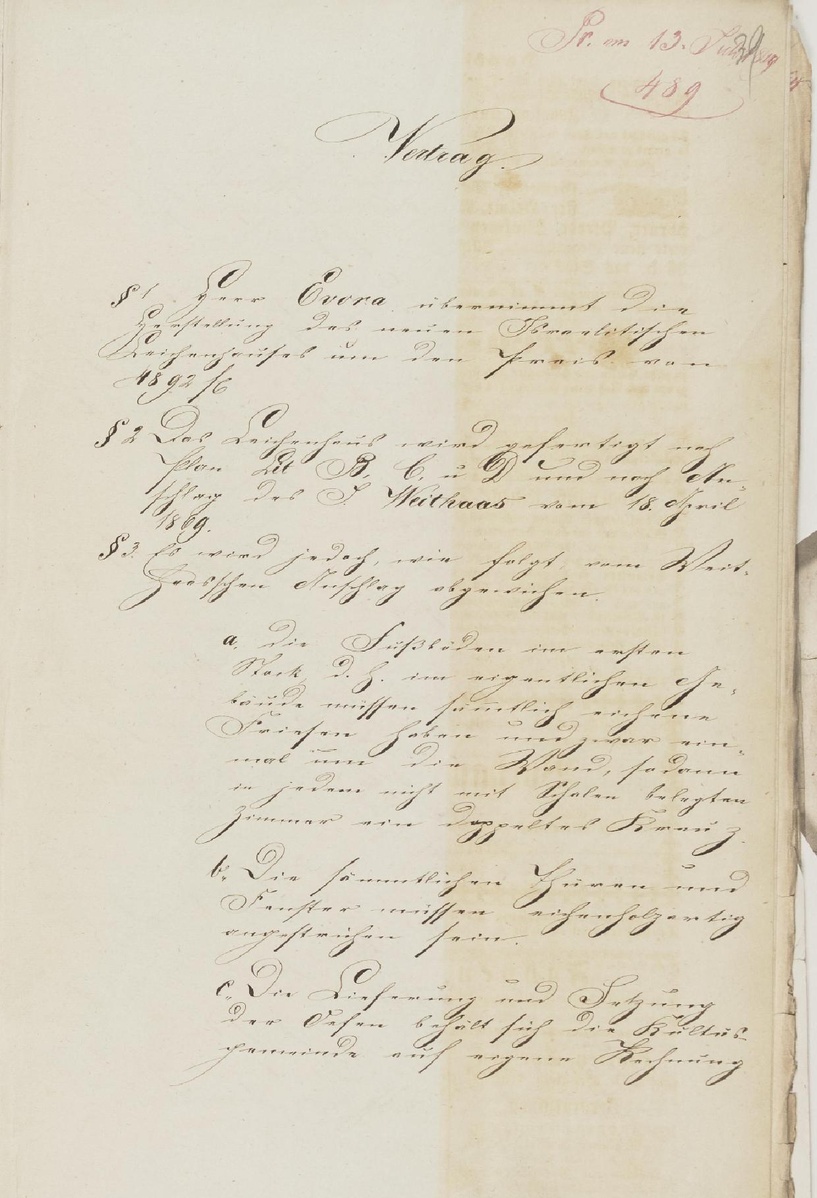 Pr. am 13. Juli
489
Vertrag.
§ 1 Herr Evora übernimmt die
Herstellung des neuen Israelitischen
Leichenhauses um den Preis von
4892 fl
§ 2 Das Leichenhaus wird gefertigt nach
Plan Lit B, C, u D und nach An-
schlag des J. Weithaas vom 18. April
1869.
§ 3. Es wird jedoch, wie folgt, vom Weit-
haasschen Anschlag abgewichen.
a, die Fußböden im ersten
Stock, d. h. im eigentlichen Ge-
bäude müssen sämtlich eichene
Friesen haben und zwar ein-
mal um die Wand, sodann
in jedem nicht mit Schalen belegten
Zimmer ein doppeltes Kreuz.
b, Die sämmtlichen Thüren und
Fenster müssen eichenholzartig
angestrichen sein.
c, Die Lieferung und Setzung
der Oefen behält sich die Kultus-
gemeinde auf eigene Rechnung